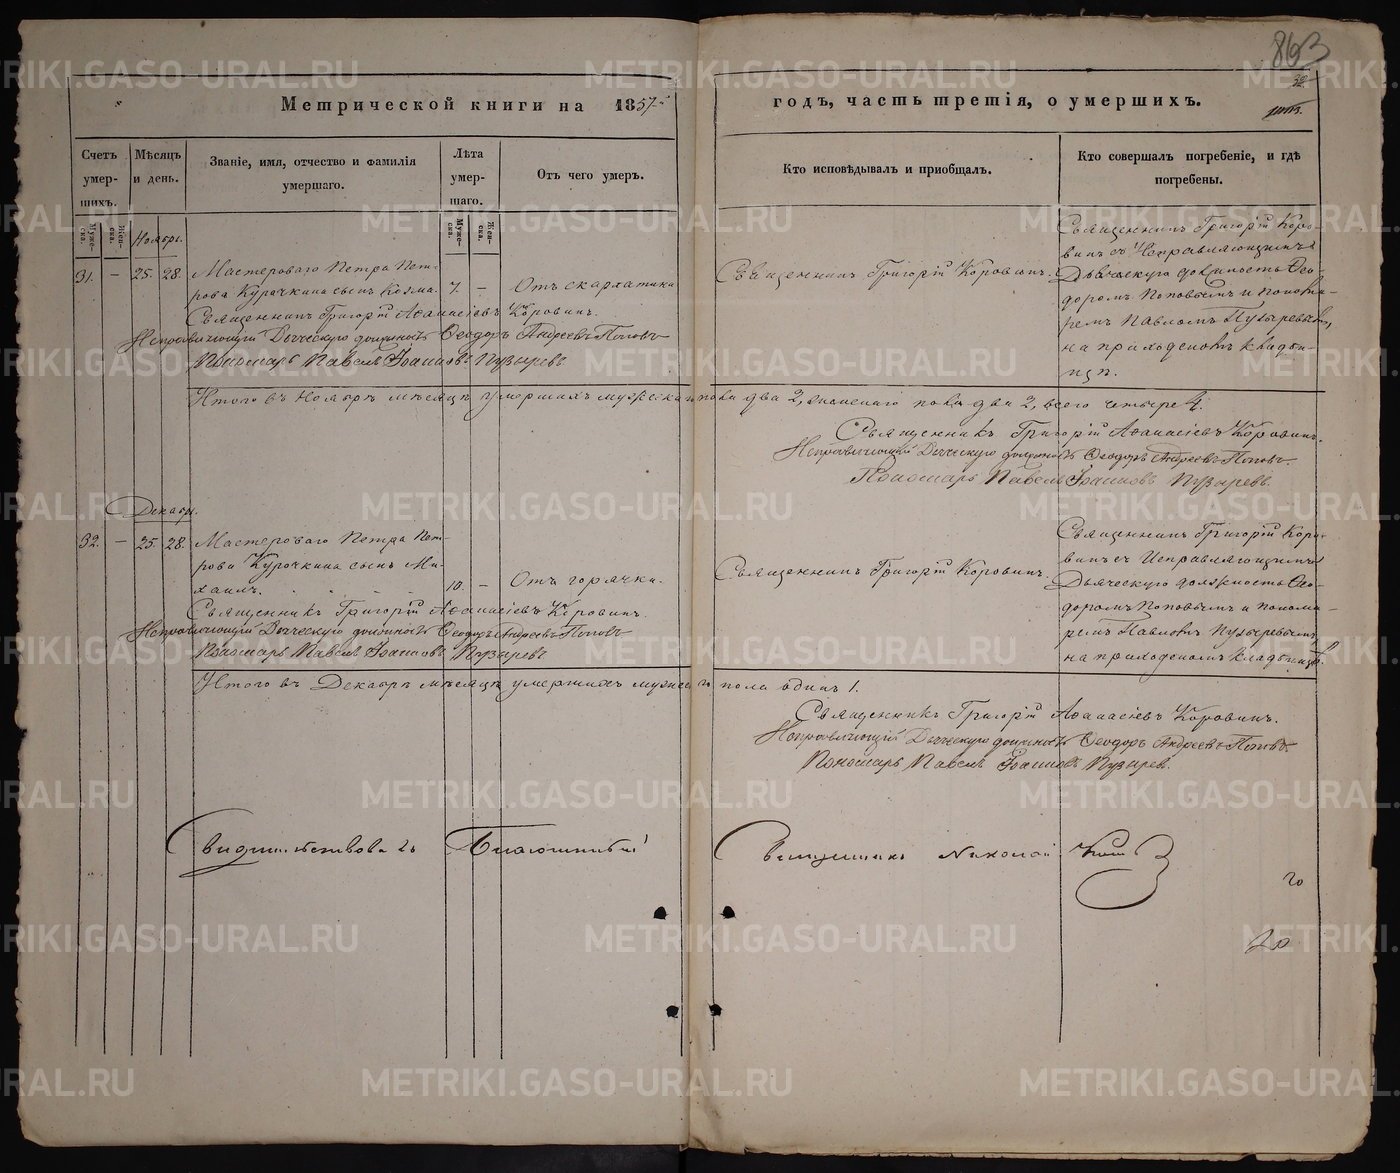 863
Метрической книги на 1857й
годъ, часть третія, о умершихъ.
32
Счетъ умер-шихъ.
Мѣсяцъ и день.
Званіе, имя, отчество и фамилія умершаго.
Лѣта умер-шаго.
Отъ чего умеръ.
Кто исповѣдывалъ и приобщалъ.
Кто совершалъ погребеніе, и гдѣ погребены.
Муже-ска.
Жен-ска.
Ноябрь.
Муже-ска.
Жен-ска.
31. – 25. 28.
Мастероваго Петра Пет-
рова Курочкина сынъ Козма. 7. – Отъ скарлатины
Священникъ Григорій Коровинъ.
Священникъ Григорій Коро-
винъ съ Исправляющимъ
Дьяческую должность Ѳео-
доромъ Поповымъ и понома-
ремъ Павломъ Пузыревымъ,
на приходскомъ кладби-
щѣ.
Священникъ Григорій Аѳанасіевъ Коровинъ.
Исправляющій Дьяческую должность Ѳеодоръ Андреевъ Поповъ
Пономарь Павелъ Іоанновъ Пузыревъ
Итого въ Ноябрѣ мѣсяцѣ умершихъ мужеска пола два 2, женскаго пола два 2, всего четыре 4.
Священникъ Григорій Аѳанасіевъ Коровинъ.
Исправляющій Дьяческую должность Ѳеодоръ Андреевъ Поповъ.
Пономарь Павелъ Іоанновъ Пузыревъ.
Декабрь.
32. – 25. 28.
Мастероваго Петра Пет-
рова Курочкина сынъ Ми-
хаилъ. 10. – Отъ горячки.
Священникъ Григорій Коровинъ.
Священникъ Григорій Коро-
винъ съ Исправляющимъ
Дьяческую должность Ѳео-
доромъ Поповымъ и понома-
ремъ Павломъ Пузыревымъ,
на приходскомъ кладбищѣ.
Священникъ Григорій Аѳанасіевъ Коровинъ.
Исправляющій Дьяческую должность Ѳеодоръ Андреевъ Поповъ
Пономарь Павелъ Іоанновъ Пузыревъ
Итого въ Декабрѣ мѣсяцѣ умершихъ мужескаго пола одинъ 1.
Священникъ Григорій Аѳанасіевъ Коровинъ.
Исправляющій Дьяческую должность Ѳеодоръ Андреевъ Поповъ.
Пономарь Павелъ Іоанновъ Пузыревъ.
Свидѣтельствовалъ Благочинный
Священникъ Николай
20
METRIKI.GASO-URAL.RU